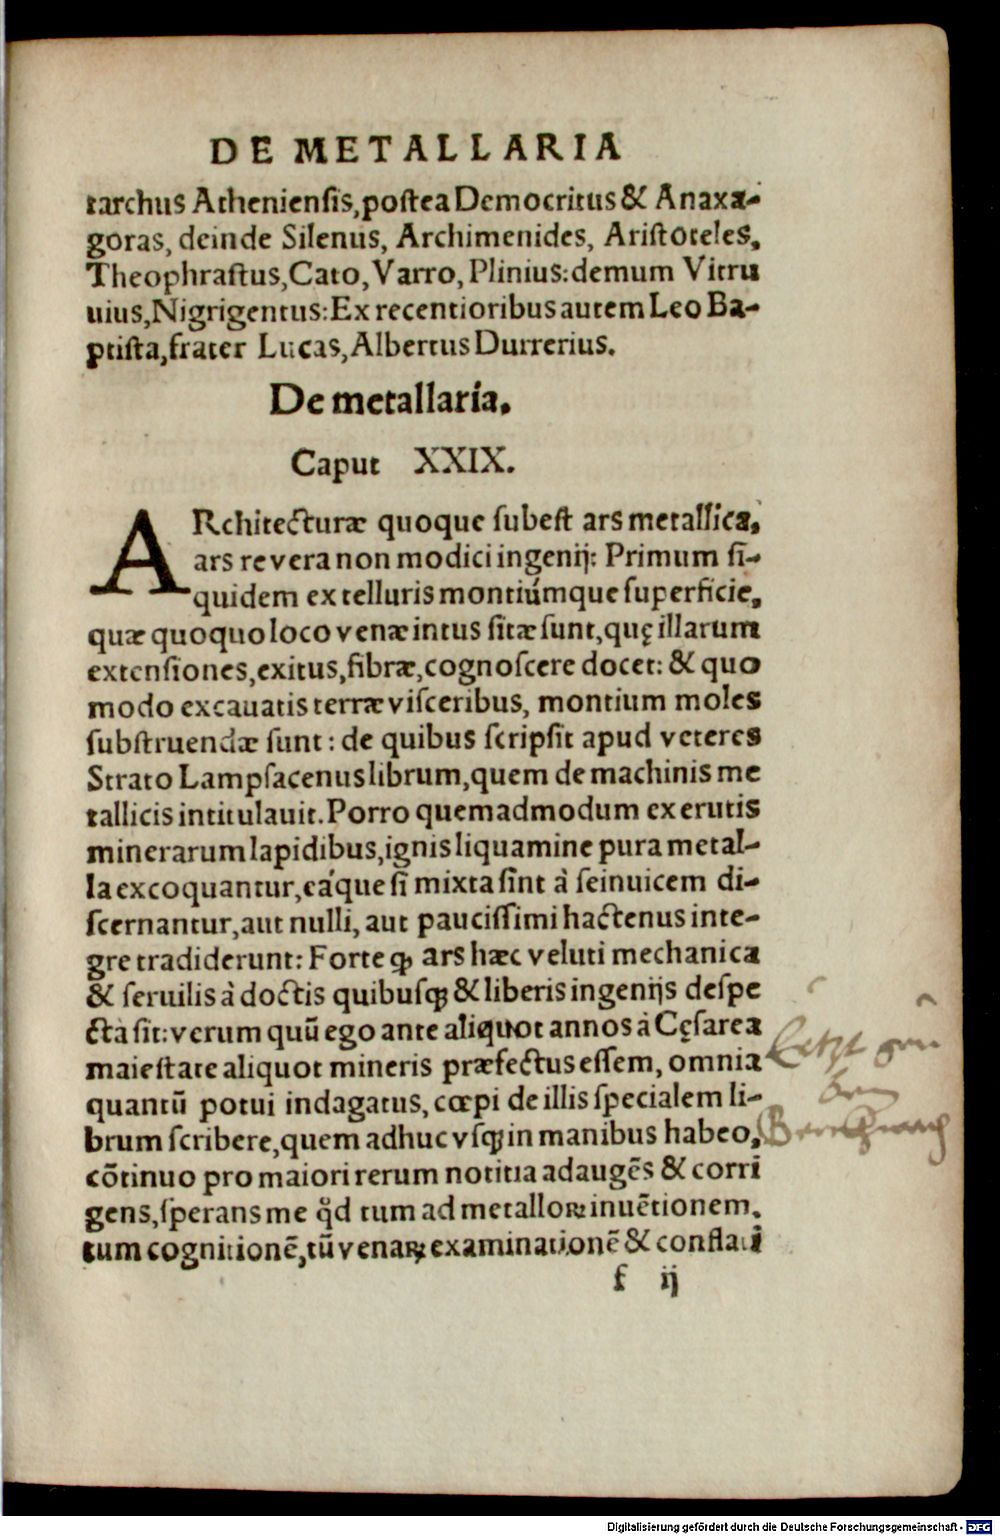 DE METALLARIA
tarchus Atheniensis, postea Democritus & Anaxa-
goras, deinde Silenus, Archimenides, Aristoteles,
Theophrastus, Cato, Varro, Plinius: demum Vitru
uius, Nigrigentus: Ex recentioribus autem Leo Ba-
ptista, frater Lucas, Albertus Durrerius.
De metallaria.
Caput XXIX.
ARchitecturæ quoque subest ars metallica,
ars re vera non modici ingenij: Primum si-
quidem ex telluris montiúmque superficie,
quæ quoquo loco venæ intus sitæ sunt, quę illarum
extensiones, exitus, fibræ, cognoscere docet: & quo
modo excauatis terræ visceribus, montium moles
substruendæ sunt: de quibus scripsit apud veteres
Strato Lampsacenus librum, quem de machinis me
tallicis intitulauit. Porro quemadmodum ex erutis
minerarum lapidibus, ignis liquamine pura metal-
la excoquantur, eáque si mixta sint à seinuicem di-
scernantur, aut nulli, aut paucissimi hactenus inte-
gre tradiderunt: Forte ꝙ ars hæc veluti mechanica
& seruilis à doctis quibusqꝫ & liberis ingenijs despe
cta sit: verum quū ego ante aliquot annos à Cęsarea
maiestate aliquot mineris præfectus essem, omnia
quantū potui indagatus, cœpi de illis specialem li-
brum scribere, quem adhuc vsqꝫ in manibus habeo,
cōtinuo pro maiori rerum notitia adaugēs & corri
gens, sperans me q̊d tum ad metalloꝝ inuētionem,
tum cognitionē, tū venaꝝ examinationē & conflati
f ij
Digitalisierung gefördert durch die Deutsche Forschungsgemeinschaft - DFG